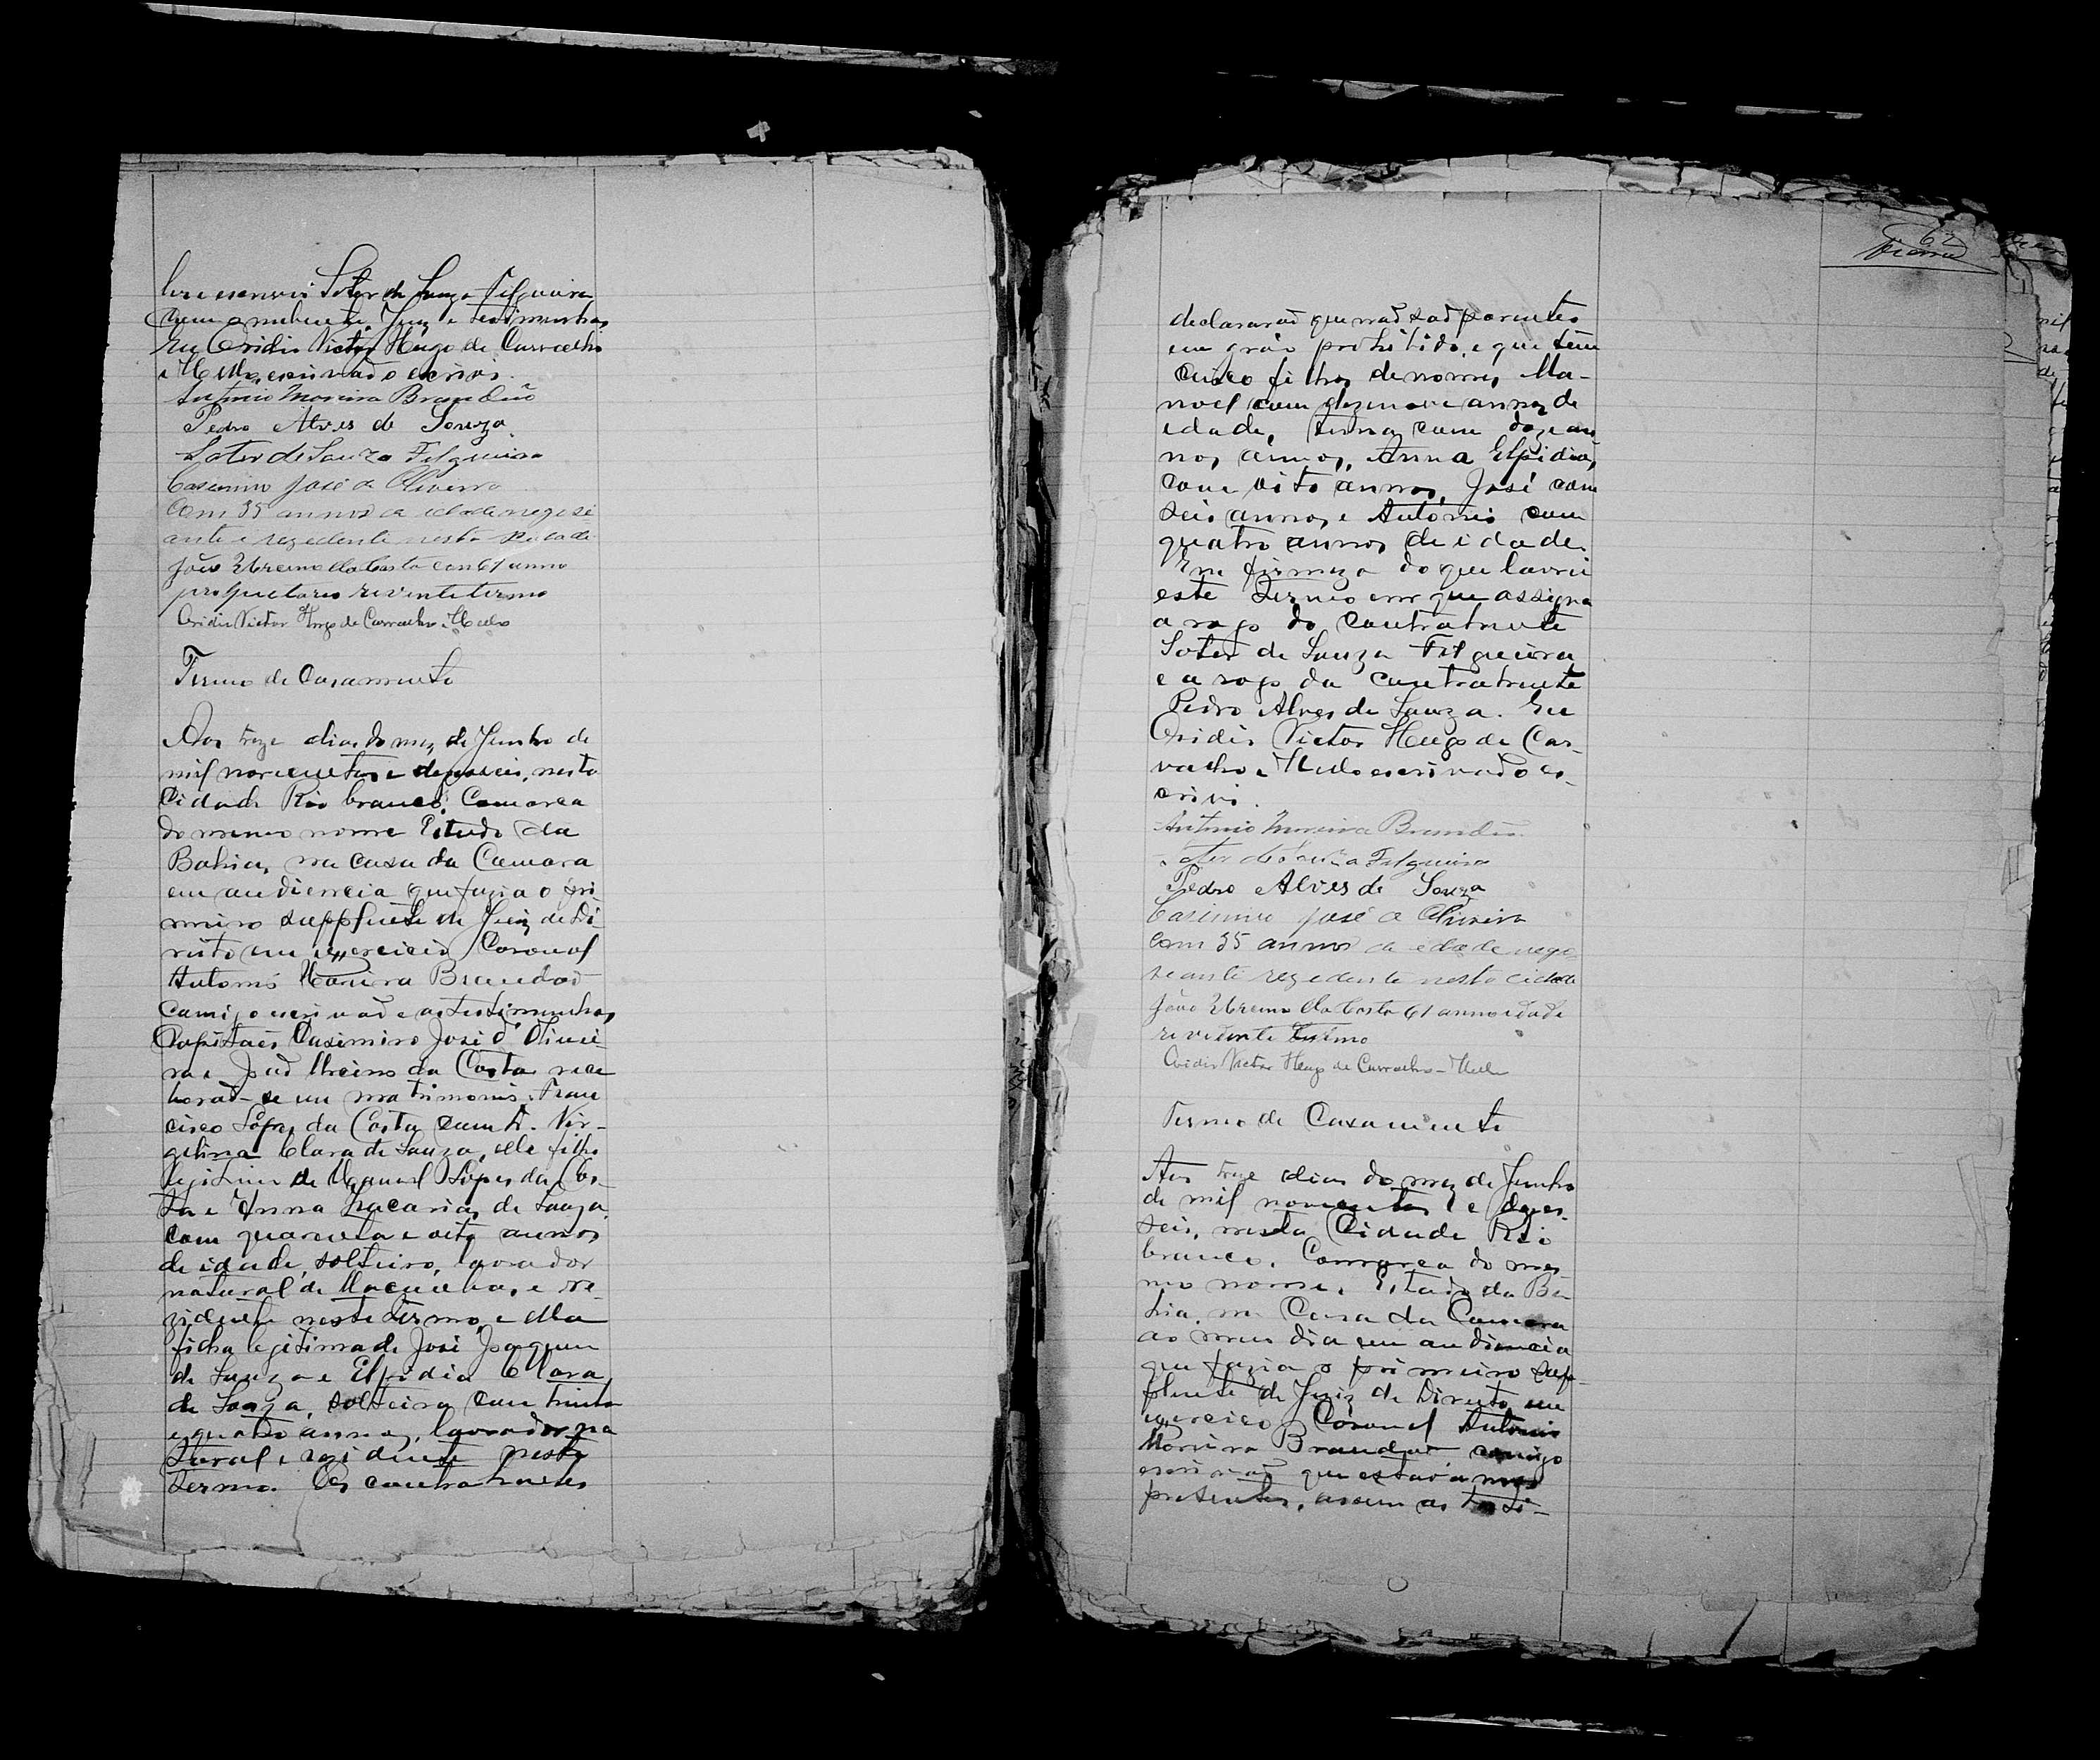 ler e escrever Soter de Souza Filgueira
Eu Ovidio Victor Hugo de Carvalho
e Mello, escrivão o escrivi.
Antonio Moreira Brandão
Pedro Alves de Souza
Soter de Souza Filgueira
Casimiro José de Oliveira
Com 35 annos de idade negosi
ante e rezedente nesta cidade
João Ursino da Costa com 61 anno
Ovidio Victor Hugo de Carvalho e Mello
Termo de Casamento
Aos treze dias do mez de Junho de
mil novecentos e deseseis, nesta
Cidade Rio branco, Comarca
do mesmo nome Estado da
Bahia, na casa da Camara
em audiencia que fazia o pri
meiro supplente de Juiz de Di
reito em exercicio Coronel
Antonio Moreira Brandão
comigo escrivão e as testimunhas
Capitães Casimiro José d'Olivei
ra e João Ursino da Costa, rece
berão-se em matrimonio Fran
cisco Lopes da Costa com D. Vir-
gelina Clara de Souza, elle filho
legitimo de Manoel Lopes da Cos-
ta e Anna Zacarias de Souza
com quarenta e oito annos
de idade, solteiro, lavrador
natural de Macaubas, e re-
zidente neste termo, e ella
filha legitima de José Joaquim
de Souza e Elpidia Clara
de Souza, solteira com trinta
e quatro annos, lavrador, na
tural e rezidente neste
termo. Os contrahentes
62
declararão que não são parentes
em gráo prohibido, e que têm
cinco filhos de nomes Ma-
noel com dezenove annos de
idade, com doze an-
nos annos, Anna Elpidia,
com oito annos, José com
seis annos e Antonio com
quatro annos de idade.
Em firmeza do que lavrei
este termo em que assigna
a rogo do contratante
Soter de Souza Filgueira
e a rogo da contratante
Pedro Alves de Souza. Eu
Ovidio Victor Hugo de Car-
valho e Mello escrivão o es-
crivi.
Antonio Moreira Brandão
Soter de Souza Filgueira
Pedro Alves de Souza
Casimiro José de Oliveira
Com 35 annos de edade nego
seante rezedente nesta cidade
João Ursino da Costa 61 anno idade
rezidente termo
Ovidio Victor Hugo de Carvalho e Mello
Termo de Casamento
Aos treze dias do mez de Junho
de mil novecentos e deses-
seis, nesta Cidade Rio
branco, Comarca do mes
mo nome, Estado da Ba-
hia, na Casa da Camara
ao meio dia em audiencia
que fazia o primeiro sup-
plente de Juiz de Direito em
exercicio Coronel Antonio
Moreira Brandão comigo
escrivão que estavamos
presentes, assim as testi-